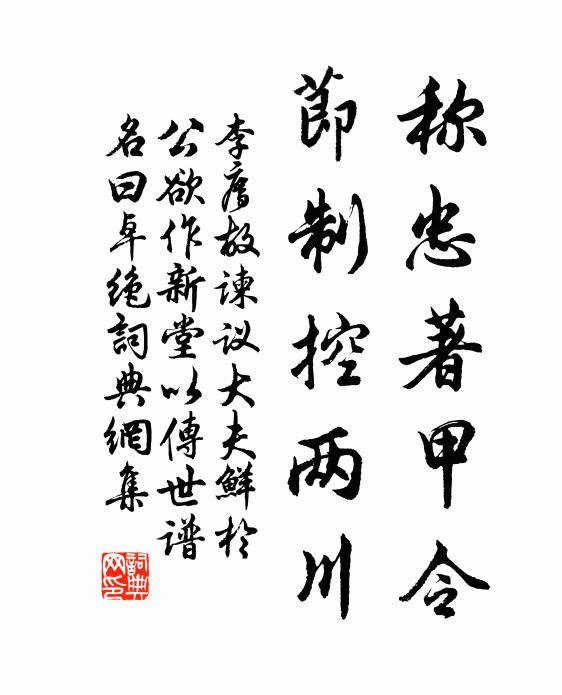 称忠著甲令
節制控两川
李廌故谏议大夫鮮於
公欲作新堂以傳世谱
名曰卓绝詞典網集
詞典
网印